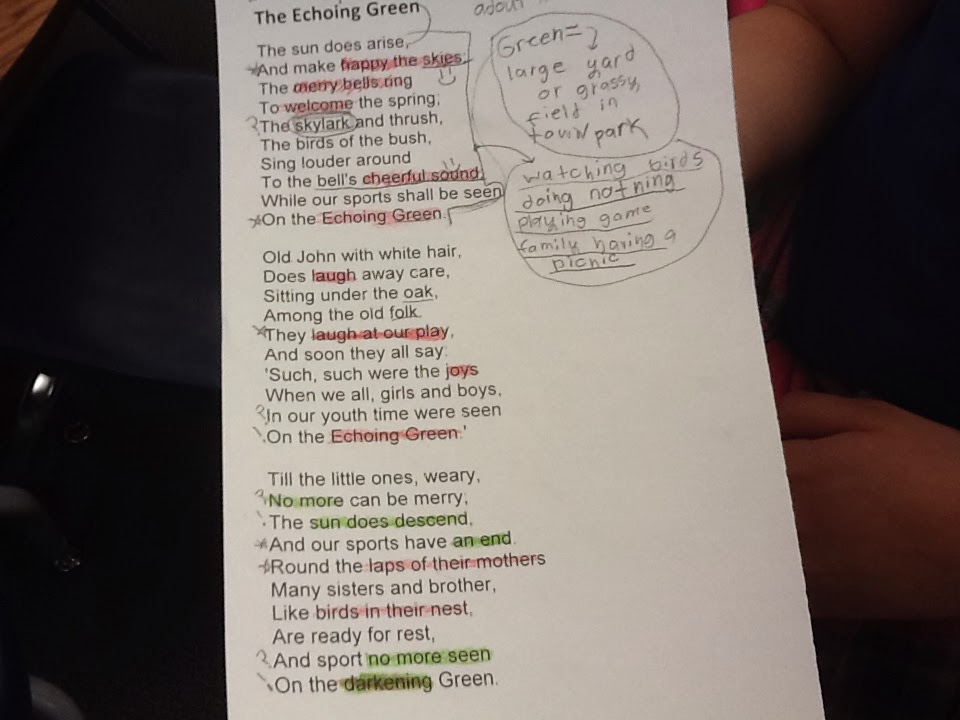 The Echoing Green
The sun does arise,
And make happy the skies;
The merry bells ring
To welcome the spring;
The skylark and thrush,
The birds of the bush,
Sing louder around
To the bell's cheerful sound,
While our sports shall be seen
On the Echoing Green.
Green=
large yard
or grassy
field in
town/park
watching birds
doing nothing
playing game
family having a
picnic
Old John with white hair,
Does laugh away care,
Sitting under the oak,
Among the old folk.
They laugh at our play,
And soon they all say:
'Such, such were the joys
When we all, girls and boys,
In our youth time were seen
On the Echoing Green.'
Till the little ones, weary,
No more can be merry;
The sun does descend,
And our sports have an end.
Round the laps of their mothers
Many sisters and brother,
Like birds in their nest,
Are ready for rest,
And sport no more seen
On the darkening Green.